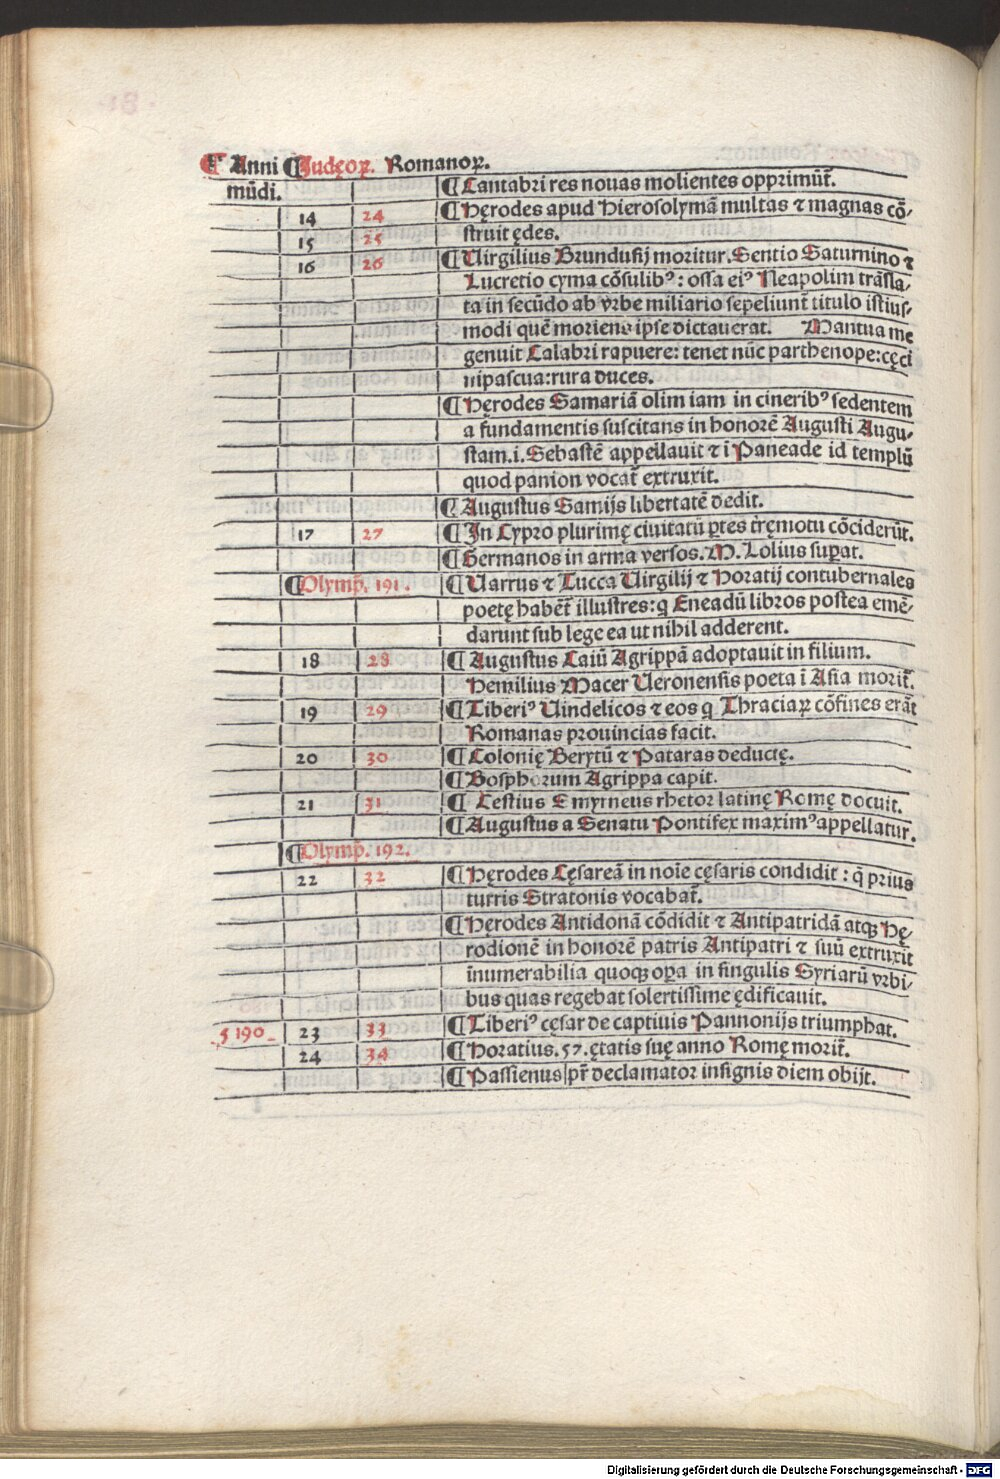 ¶ Anni ¶ Iudęoꝝ. Romanoꝝ.
mūdi. ¶ Cantabri res nouas molientes opprimūt̄.
14 24 ¶ Hęrodes apud Hierosolymā multas ⁊ magnas cō-
15 25 struit ędes.
16 26 ¶ Uirgilius Brundusij moritur. Sentio Saturnino ⁊
Lucretio cyma cōsulibꝰ: ossa eiꝰ Neapolim trāsla-
ta in secūdo ab vrbe miliario sepeliunt̄ titulo istius-
modi quē moriens ipse dictauerat. Mantua me
genuit Calabri rapuere: tenet nūc parthenope: cęci
ni pascua: rura duces.
¶ Hęrodes Samariā olim iam in cineribꝰ sedentem
a fundamentis suscitans in honorē Augusti Augu-
stam .i. Sebastē appellauit ⁊ ī Paneade id templū
quod panion vocat̄ extruxit.
¶ Augustus Samijs libertatē dedit.
17 27 ¶ In Cypro plurimę ciuitatū ꝑtes t̄ręmotu cōciderūt.
¶ Germanos in arma versos. M. Lolius suꝑat.
¶ Olymp̄. 191. ¶ Uarrus ⁊ Tucca Uirgilij ⁊ Horatij contubernales
poetę habent̄ illustres: q Eneadū libros postea emē-
darunt sub lege ea ut nihil adderent.
18 28 ¶ Augustus Caiū Agrippā adoptauit in filium.
Hemilius Macer Ueronensis poeta ī Asia morit̄.
19 29 ¶ Tiberiꝰ Uindelicos ⁊ eos q Thraciaꝝ cōfines erāt
Romanas prouincias facit.
20 30 ¶ Colonię Berytū ⁊ Pataras deductę.
¶ Bosphorum Agrippa capit.
21 31 ¶ Cestius Smyrneus rhetor latinę Romę docuit.
¶ Augustus a Senatu Pontifex maximꝰ appellatur.
¶ Olymp̄. 192.
22 32 ¶ Hęrodes Cęsareā in noīe cęsaris condidit: q̄ prius
turris Stratonis vocabat̄.
¶ Hęrodes Antidonā cōdidit ⁊ Antipatridā atqꝫ Hę-
rodionē in honorē patris Antipatri ⁊ suū extruxit
īnumerabilia quoqꝫ oꝑa in singulis Syriarū vrbi-
bus quas regebat solertissime ędificauit.
5190 23 33 ¶ Tiberiꝰ cęsar de captiuis Pannonijs triumphat.
24 34 ¶ Horatius .57. ętatis suę anno Romę morit̄.
¶ Passienus pr̄ declamator insignis diem obijt.
Digitalisierung gefördert durch die Deutsche Forschungsgemeinschaft - DFG